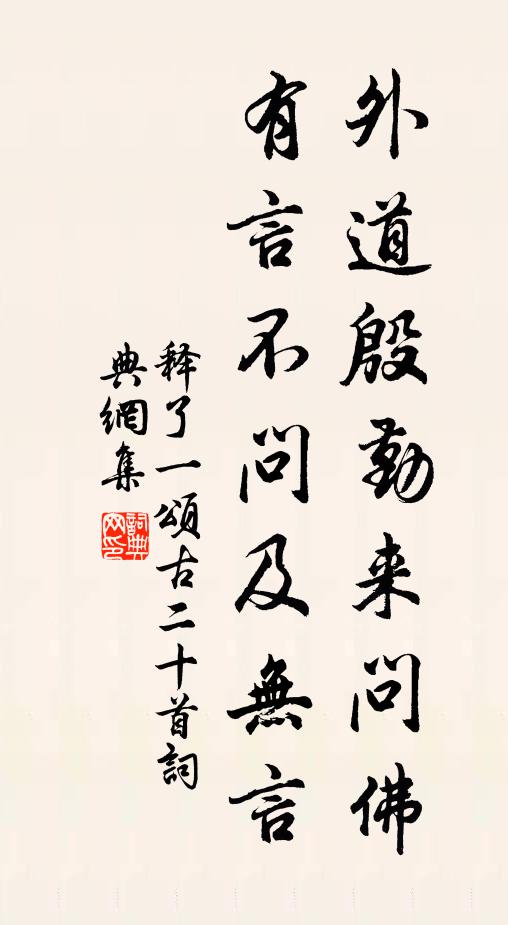 外道殷勤来問佛
有言不問及無言
释了一頌古二十首詞
典網集
詞典
网印